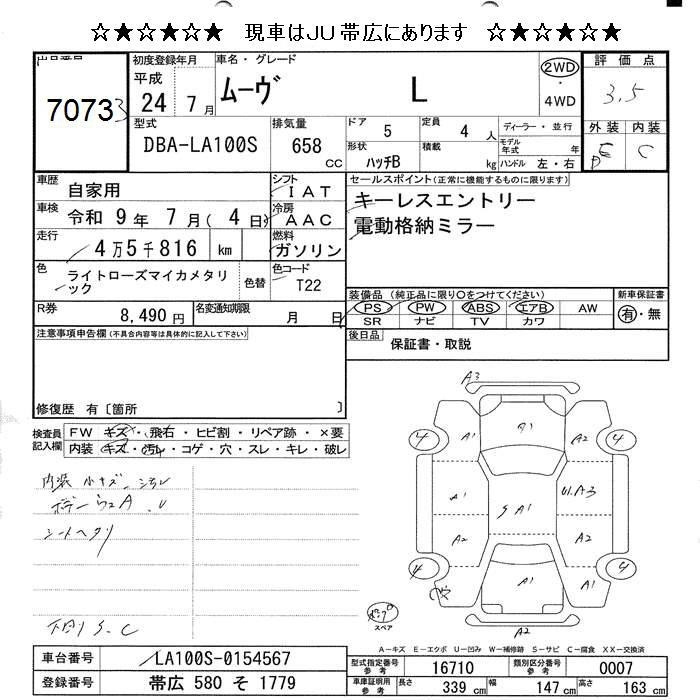 ☆★☆★☆★ 現車はJU帯広にあります ☆★☆★☆★
出品番号 7073
初度登録年月 平成 24年 7月
車名・グレード ムーヴ L
2WD ・ 4WD
評価点 3.5
外装 E 内装 C
型式 DBA-LA100S
排気量 658 CC
ドア 5 定員 4 人
形状 ハッチB 積載 kg
ディーラー・並行
モデル年式 年
ハンドル 左・右
車歴 自家用
シフト IAT
車検 令和 9年 7月( 4日)
冷房 AAC
走行 4万5千816 km
燃料 ガソリン
色 ライトローズマイカメタリック
色替
色コード T22
R券 8,490円
名変通知期限 月 日
セールスポイント(正常に機能するものに限ります)
キーレスエントリー
電動格納ミラー
装備品(純正品に限り○をつけてください)
PS PW ABS エアB AW
SR ナビ TV カワ
新車保証書 有・無
後日品 保証書・取説
注意事項申告欄(不具合内容等は具体的に記入して下さい)
修復歴 有〔箇所 〕
検査員記入欄
FW キズ・飛石・ヒビ割・リペア跡・×要
内装 キズ・汚レ・コゲ・穴・スレ・キレ・破レ
内装 小キズ、
シートヘタリ
下廻りS、C
A3
4 A1 A1 A1 4
A1 S A1 U1.A3
A2 A2
4 A1 A1 4
A2
スペア
A-キズ E-エクボ U-凹み W-補修跡 S-サビ C-腐食 XX-交換済
車台番号 LA100S-0154567
登録番号 帯広 580 そ 1779
型式指定番号 参考 16710
類別区分番号 参考 0007
車庫証明用 参考 長さ 339 cm 幅 147 cm 高さ 163 cm